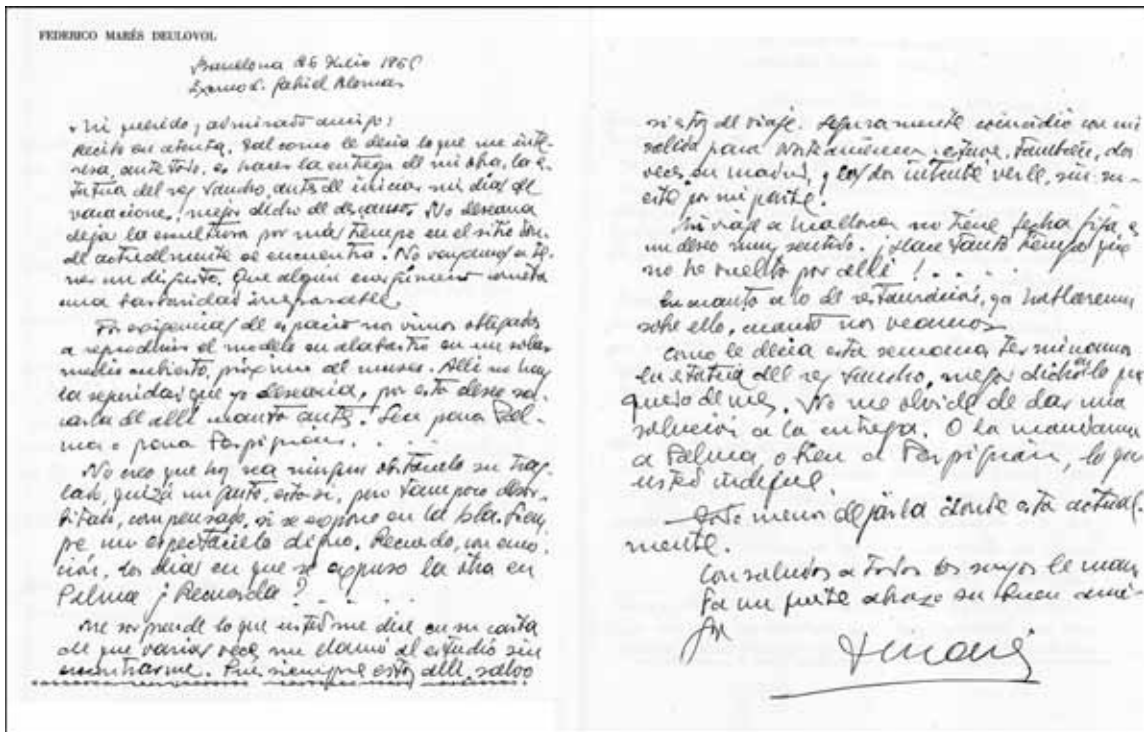 FEDERICO MARÉS DEULOVOL
Barcelona 26 Julio 196
Excmo. S. Gabriel Alomar
Mi querido y admirado amigo:
Recibo su atenta. Tal como le decia lo que me inte-
resa, ante todo, es hacer la entrega de mi obra, la es-
tatua del rey Sancho antes de iniciar mis dias de
vacaciones, mejor dicho de descanso. No desearia
dejar la escultura por más tiempo en el sitio don-
de actualmente se encuentra. No vayamos a te-
ner un disgusto. Que algún energúmeno cometa
una barbaridad irreparable.
Por exigencias de espacio nos vimos obligados
a reproducir el modelo en alabastro en un solar
medio cubierto, próximo del museo. Alli no hay
la seguridad que yo desearia, por esto deseo sa-
carla de alli cuanto antes. Sea para Pal-
ma o para Perpignan. . . .
No creo que hay sea ningun obstáculo su tras-
lado, quizá un gasto, esto si, pero tampoco desor-
bitado, compensado, si se expone en la Isla. Siem-
pre un espectáculo digno. Recuerdo, con emo-
ción, los dias en que se expuso la otra en
Palma ¿Recuerda? . . . .
Me sorprende lo que usted me dice en su carta
de que varias veces me llamó al estudio sin
encontrarme. Pues siempre estoy alli, salvo
si estoy de viaje. Seguramente coincidio con mi
salida para Norteamerica. estuve, tambien, dos
veces en Madrid, y las dos intenté verle, sin su-
erte por mi parte.
Mi viaje a Mallorca no tiene fecha fija, es
un deseo muy sentido. ¡Hace tanto tiempo que
no he vuelto por alli! . . . . .
En cuanto a lo de restauración, ya hablaremos
sobre ello, cuando nos veamos.
Como le decia esta semana terminamos
la estatua del rey Sancho, mejor dicho en lo po
quero de mes. No me olvide de dar una
solución a la entrega. O la mandamos
a Palma o bien a Perpignan, lo que
usted indique.
Todo menos dejarla donde esta actual-
mente.
Con saludos a todos los suyos le man
da un fuerte abrazo su buen ami-
go
F Marés